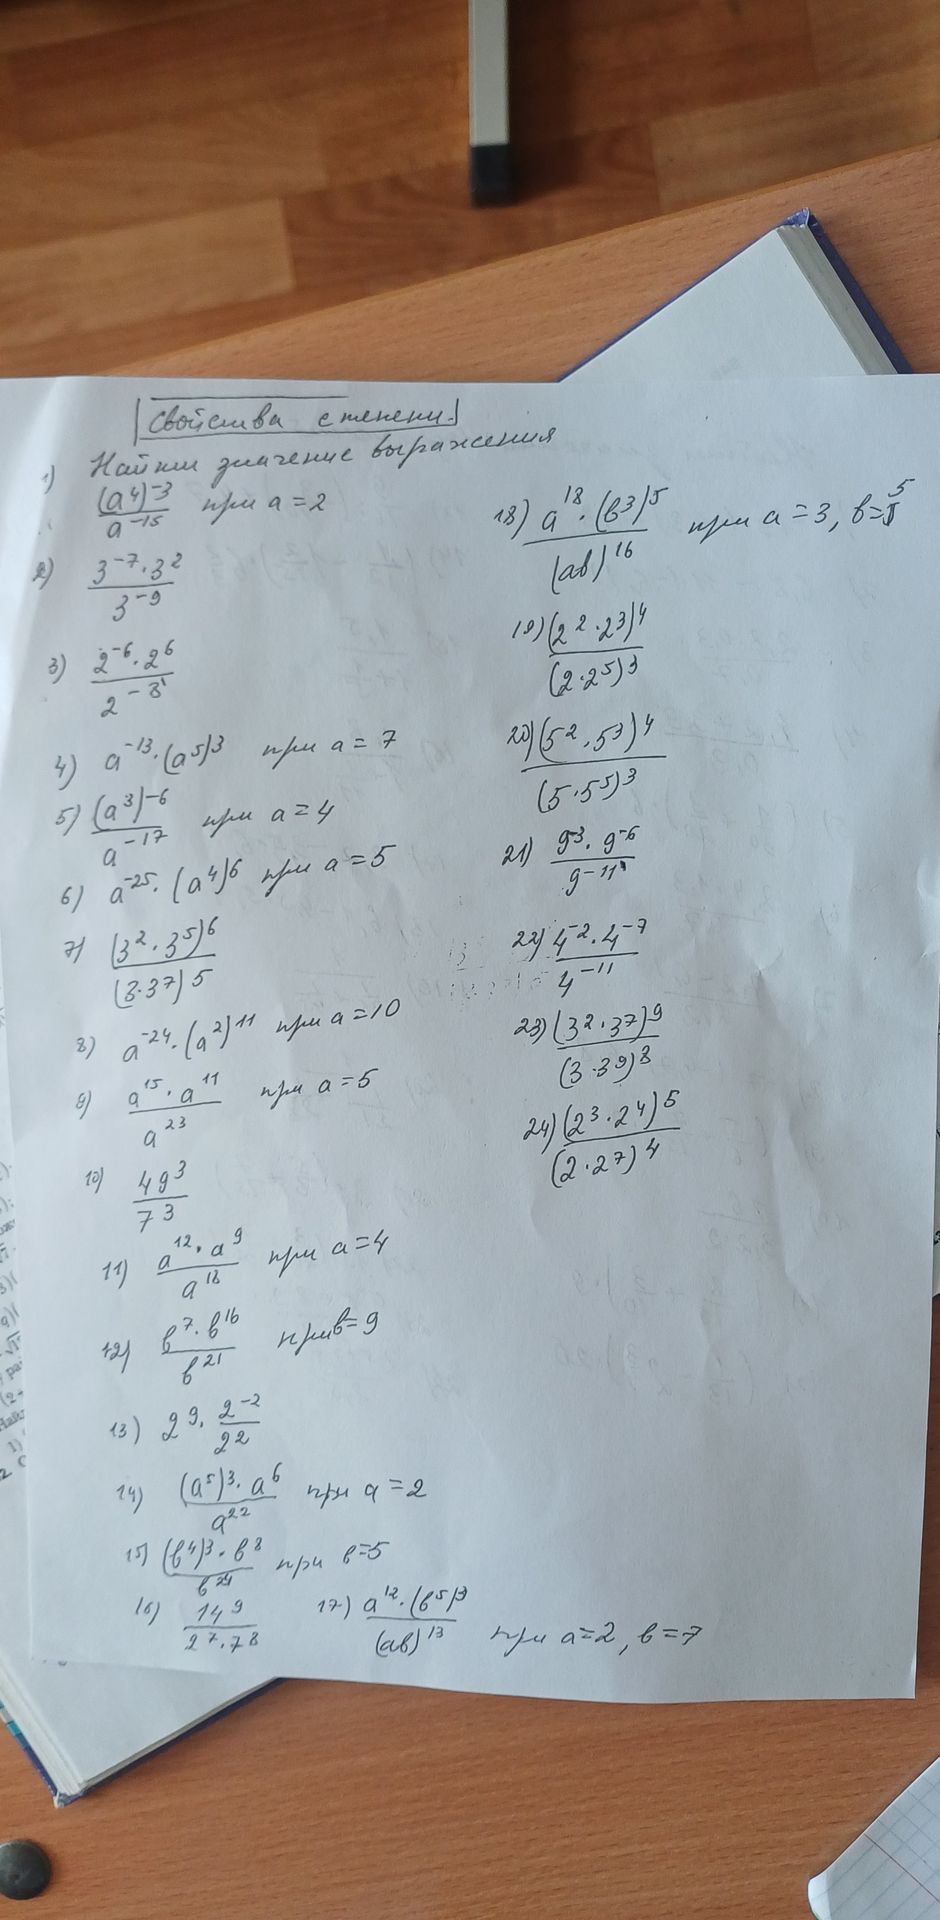 Свойства степени.
1) Найти значение выражения
(a⁴)⁻³ / a⁻¹⁵ при a = 2
2) 3⁻⁷ · 3² / 3⁻⁹
3) 2⁻⁶ · 2⁶ / 2⁻³
4) a⁻¹³ · (a⁵)³ при a = 7
5) (a³)⁻⁶ / a⁻¹⁷ при a = 4
6) a⁻²⁵ · (a⁴)⁶ при a = 5
7) (3² · 3⁵)⁶ / (3·3⁷)⁵
8) a⁻²⁴ · (a²)¹¹ при a = 10
9) a¹⁵ · a¹¹ / a²³ при a = 5
10) 49³ / 7³
11) a¹² · a⁹ / a¹⁸ при a = 4
12) b⁷ · b¹⁶ / b²¹ при b = 9
13) 2⁹ · 2⁻² / 2²
14) (a⁵)³ · a⁶ / a²² при a = 2
15) (b⁴)³ · b⁸ / b²¹ при b = 5
16) 14⁹ / 2⁷ · 7⁸
17) a¹² · (b⁵)³ / (ab)¹³ при a = 2, b = 7
18) a¹⁸ · (b³)⁵ / (ab)¹⁶ при a = 3, b = 5
19) (2² · 2³)⁴ / (2·2⁵)³
20) (5² · 5³)⁴ / (5·5⁵)³
21) 9⁻³ · 9⁻⁶ / 9⁻¹¹
22) 4⁻² · 4⁻⁷ / 4⁻¹¹
23) (3² · 3⁷)⁹ / (3·3⁹)⁸
24) (2³ · 2⁴)⁵ / (2·2⁷)⁴